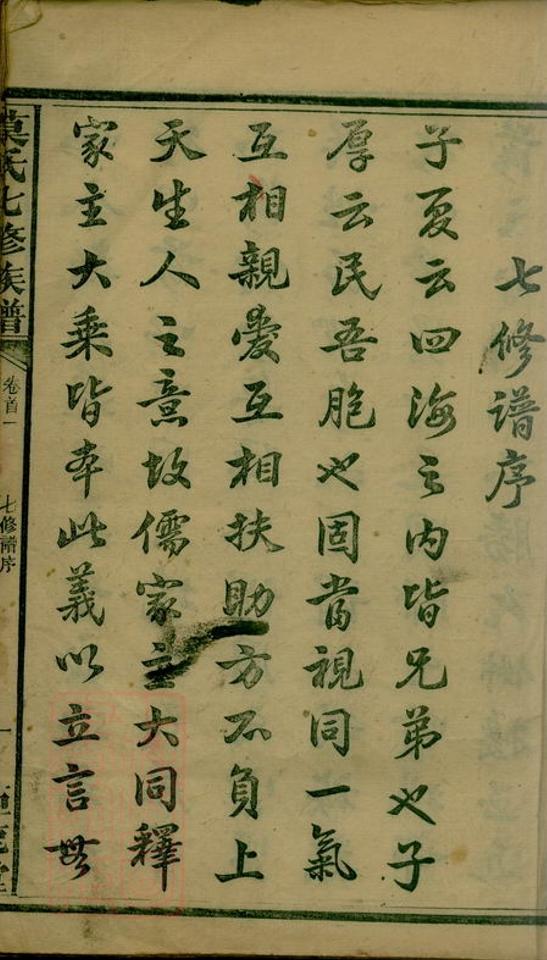 七修谱序
子夏云四海之内皆兄弟也子
厚云民吾胞也固當視同一氣
互相親愛互相扶助方不負上
天生人之意故儒家主大同釋
家主大乘皆本此義以立言無
莫氏七修族譜
卷首一
七修譜序
一